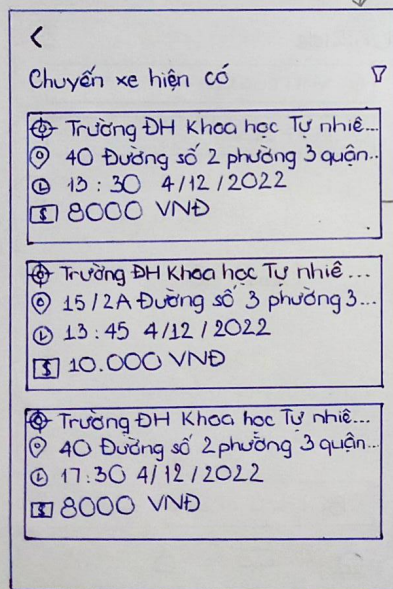 Chuyến xe hiện có
Trường ĐH Khoa học Tự nhiê...
40 Đường số 2 phường 3 quận..
13 : 30 4/12/2022
$ 8000 VNĐ
Trường ĐH Khoa học Tự nhiê...
15/2A Đường số 3 phường 3...
13:45 4/12/2022
$ 10.000 VNĐ
Trường ĐH Khoa học Tự nhiê...
40 Đường số 2 phường 3 quận...
17:30 4/12/2022
$ 8000 VNĐ